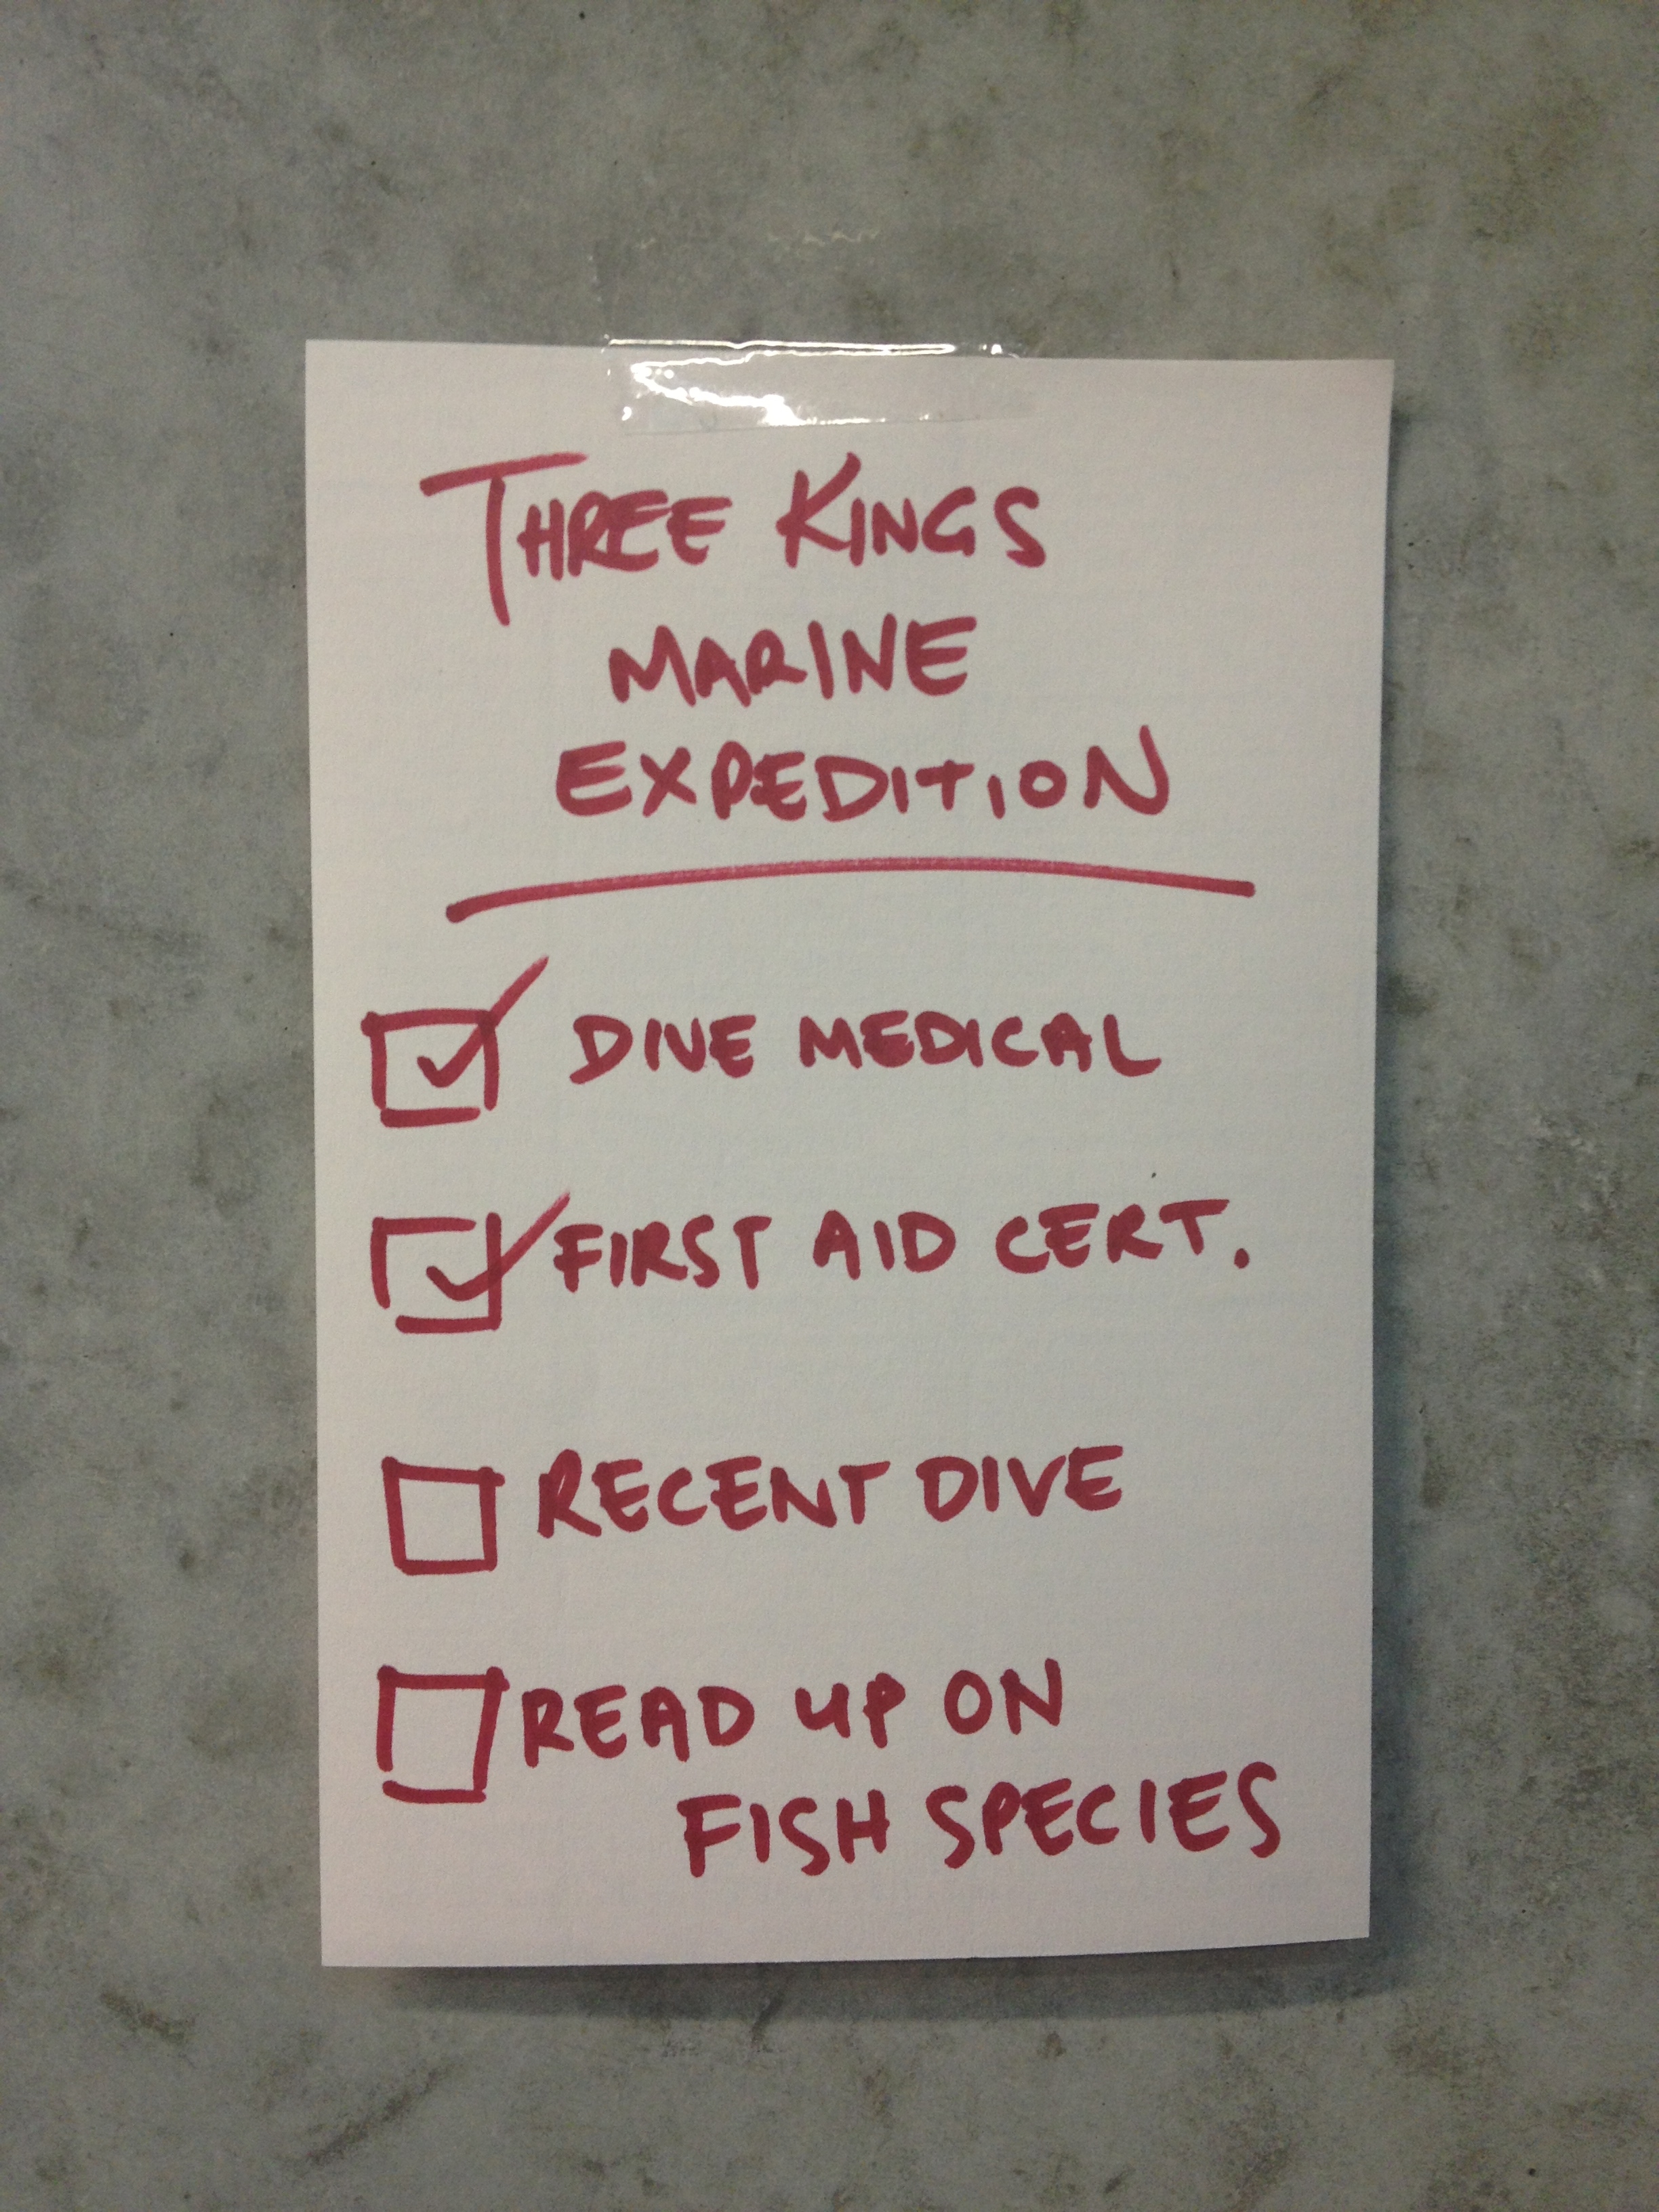 THREE KINGS
MARINE
EXPEDITION
DIVE MEDICAL
FIRST AID CERT.
RECENT DIVE
READ UP ON
FISH SPECIES